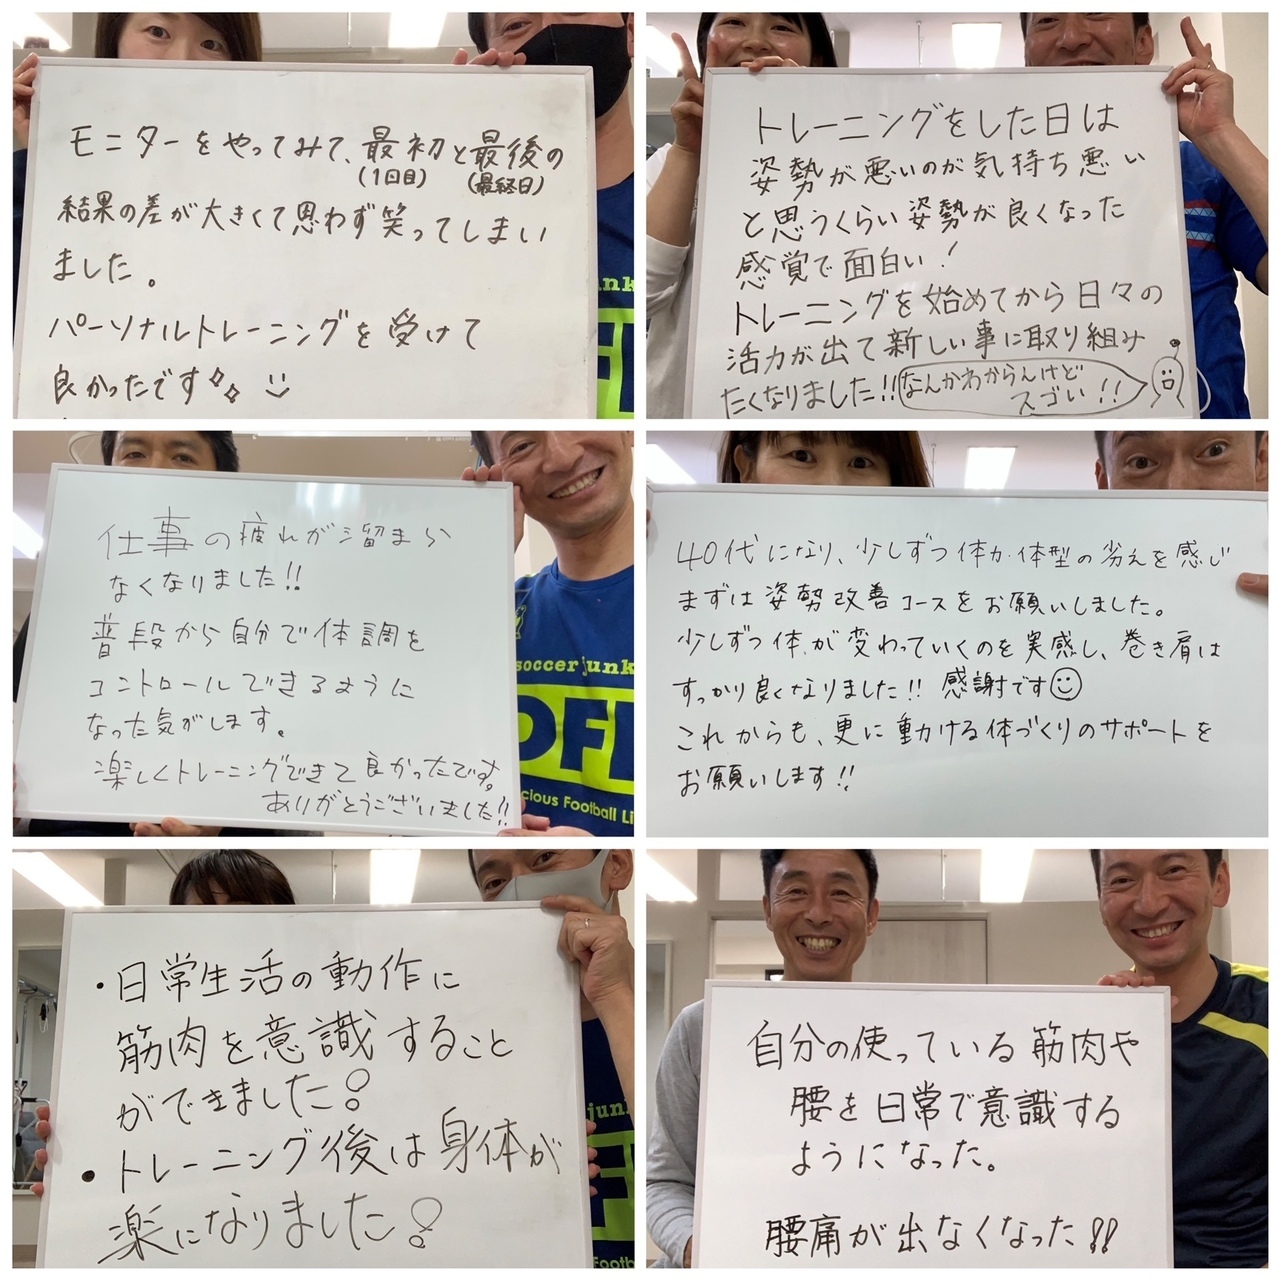 モニターをやってみて、最初と最後の
(1回目) (最終日)
結果の差が大きくて思わず笑ってしまい
ました。
パーソナルトレーニングを受けて
良かったです
トレーニングをした日は
姿勢が悪いのが気持ち悪い
と思うくらい姿勢が良くなった
感覚で面白い!
トレーニングを始めてから日々の
活力が出て新しい事に取り組み
たくなりました!!
なんかわからんけど
スゴい!!
仕事の疲れが溜まら
なくなりました!!
普段から自分で体調を
コントロールできるように
なった気がします。
楽しくトレーニングできて良かったです。
ありがとうございました!!
soccer junk
Football Li
40代になり、少しずつ体力・体型の劣えを感じ
まずは姿勢改善コースをお願いしました。
少しずつ体が変わっていくのを実感し、巻き肩は
すっかり良くなりました!! 感謝です
これからも、更に動ける体づくりのサポートを
お願いします!!
・日常生活の動作に
筋肉を意識すること
ができました!
・トレーニング後は身体が
楽になりました!
自分の使っている筋肉や
腰を日常で意識する
ようになった。
腰痛が出なくなった!!